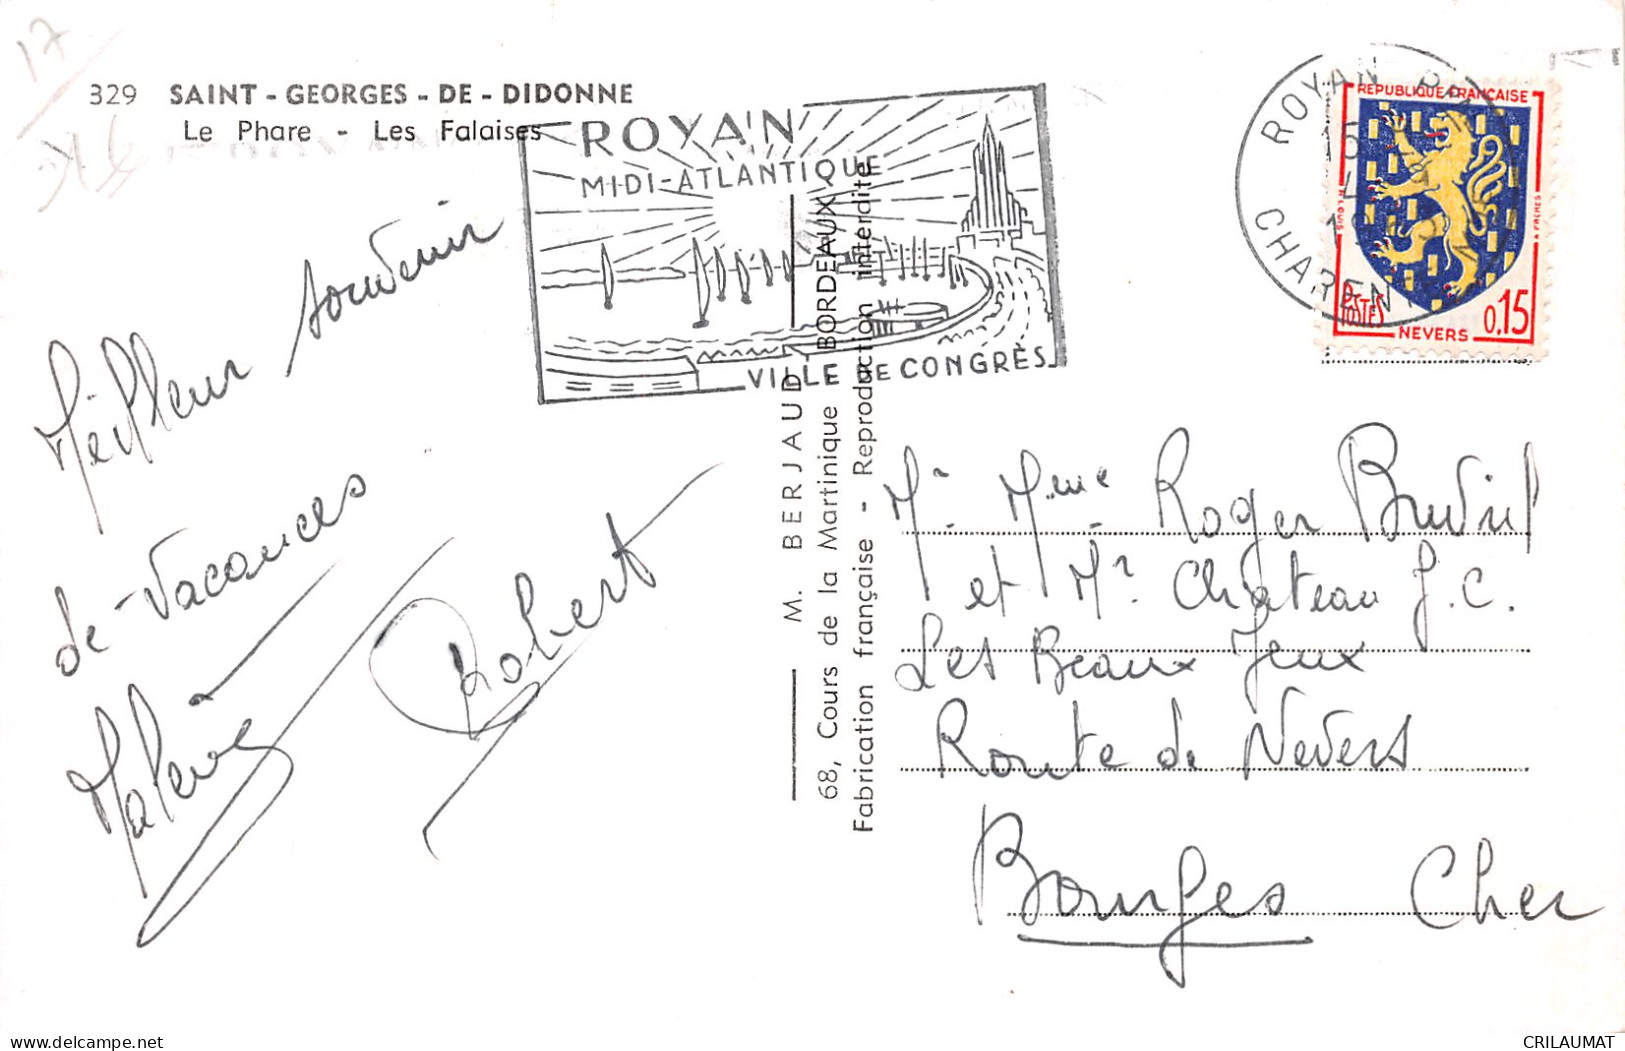 17
329 SAINT - GEORGES - DE - DIDONNE
Le Phare - Les Falaises
ROYAN
MIDI-ATLANTIQUE
VILLE DE CONGRÈS
ROYAN
15
CHAREN
REPUBLIQUE FRANÇAISE
POSTES
NEVERS
0,15
Meilleur souvenir
de Vacances
Robert
M. BERJAUD
68, Cours de la Martinique - BORDEAUX
Fabrication française - Reproduction interdite
Mr. Mme Roger
et Mr. Château J.C.
Les Beaux Jeux
Route de Nevers
Bourges Cher
delcampe.net
CRILAUMAT